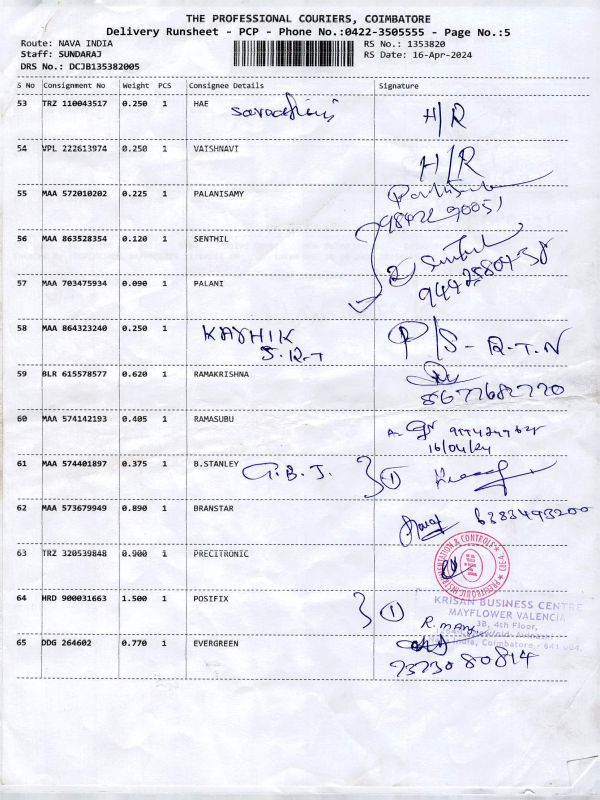 THE PROFESSIONAL COURIERS, COIMBATORE
Delivery Runsheet - PCP - Phone No.:0422-3505555 - Page No.:5
Route: NAVA INDIA RS No.: 1353820
Staff: SUNDARAJ RS Date: 16-Apr-2024
DRS No.: DCJB135382005
S No Consignment No Weight PCS Consignee Details Signature
53 TRZ 110043517 0.250 1 HAE H/R
54 VPL 222613974 0.250 1 VAISHNAVI H/R
55 MAA 572010202 0.225 1 PALANISAMY
56 MAA 863528354 0.120 1 SENTHIL
② Senthil
57 MAA 703475934 0.090 1 PALANI
58 MAA 864323240 0.250 1 P/S - R.T.N
59 BLR 615578577 0.620 1 RAMAKRISHNA
8677682770
60 MAA 574142193 0.405 1 RAMASUBU
16/04/24
61 MAA 574401897 0.375 1 B.STANLEY G.B.J. ①
62 MAA 573679949 0.890 1 BRANSTAR 6383493200
63 TRZ 320539848 0.900 1 PRECITRONIC
64 HRD 900031663 1.500 1 POSIFIX ①
KRISAN BUSINESS CENTRE
MAYFLOWER VALENCIA
3B, 4th Floor,
R. MANI
India, Coimbatore - 641 004.
65 DDG 264602 0.770 1 EVERGREEN
7373080814